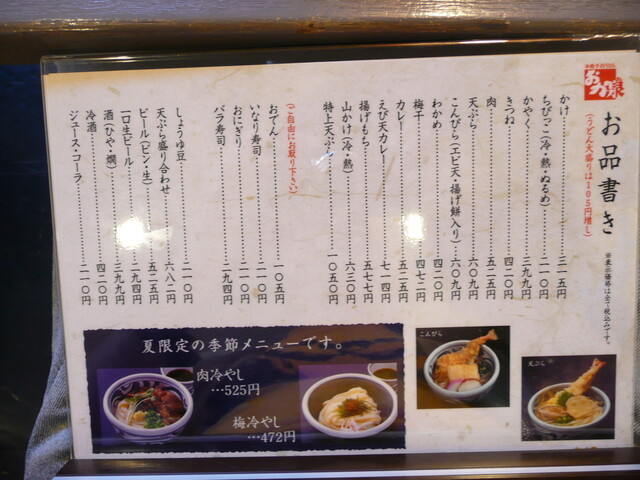 お品書き
(うどん大盛りは105円増し)
※表示価格は全て税込みです。
かけ……三一五円
ちびっこ(冷・熱・ぬるめ)……二一〇円
かやく……三九九円
きつね……四二〇円
肉……五二五円
天ぷら……六〇九円
こんぴら(エビ天・揚げ餅入り)……六〇九円
わかめ……四二〇円
梅干……四七二円
カレー……五二五円
えび天カレー……七一四円
揚げもち……五七七円
山かけ(冷・熱)……六三〇円
特上天ぷら……一〇五〇円
(ご自由にお取り下さい)
おでん……一〇五円
いなり寿司……二一〇円
おにぎり……二一〇円
バラ寿司……二九四円
しょうゆ豆……二一〇円
天ぷら盛り合わせ……六八二円
ビール(ビン・生)……五二五円
一口生ビール……二九四円
酒(ひや・燗)……三九九円
冷酒……四二〇円
ジュース・コーラ……二一〇円
夏限定の季節メニューです。
肉冷やし
…525円
梅冷やし
…472円
こんぴら
天ぷら